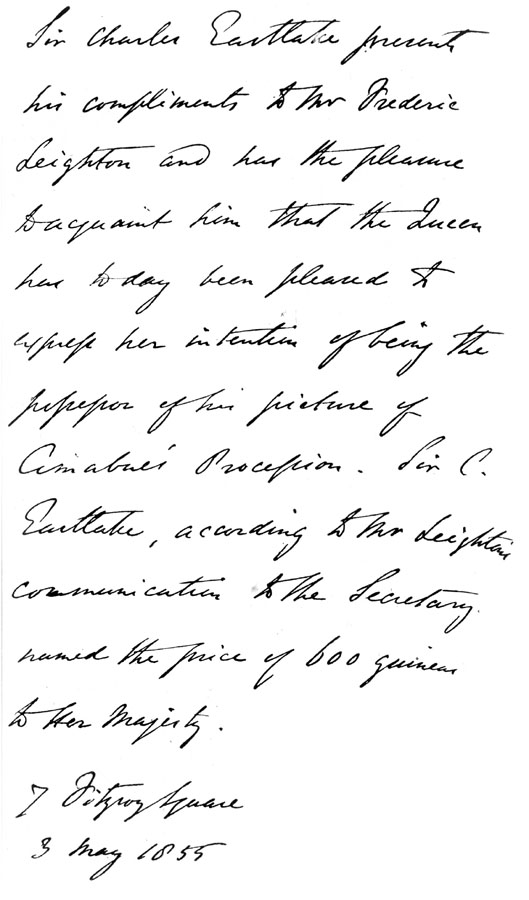 Sir Charles Eastlake presents
his compliments to Mr Frederic
Leighton and has the pleasure
to acquaint him that the Queen
has today been pleased to
express her intention of being the
possessor of his picture of
Cimabue's Procession. Sir C.
Eastlake, according to Mr Leighton's
communication to the Secretary
named the price of 600 guineas
to Her Majesty.
7 Fitzroy Square
3 May 1855